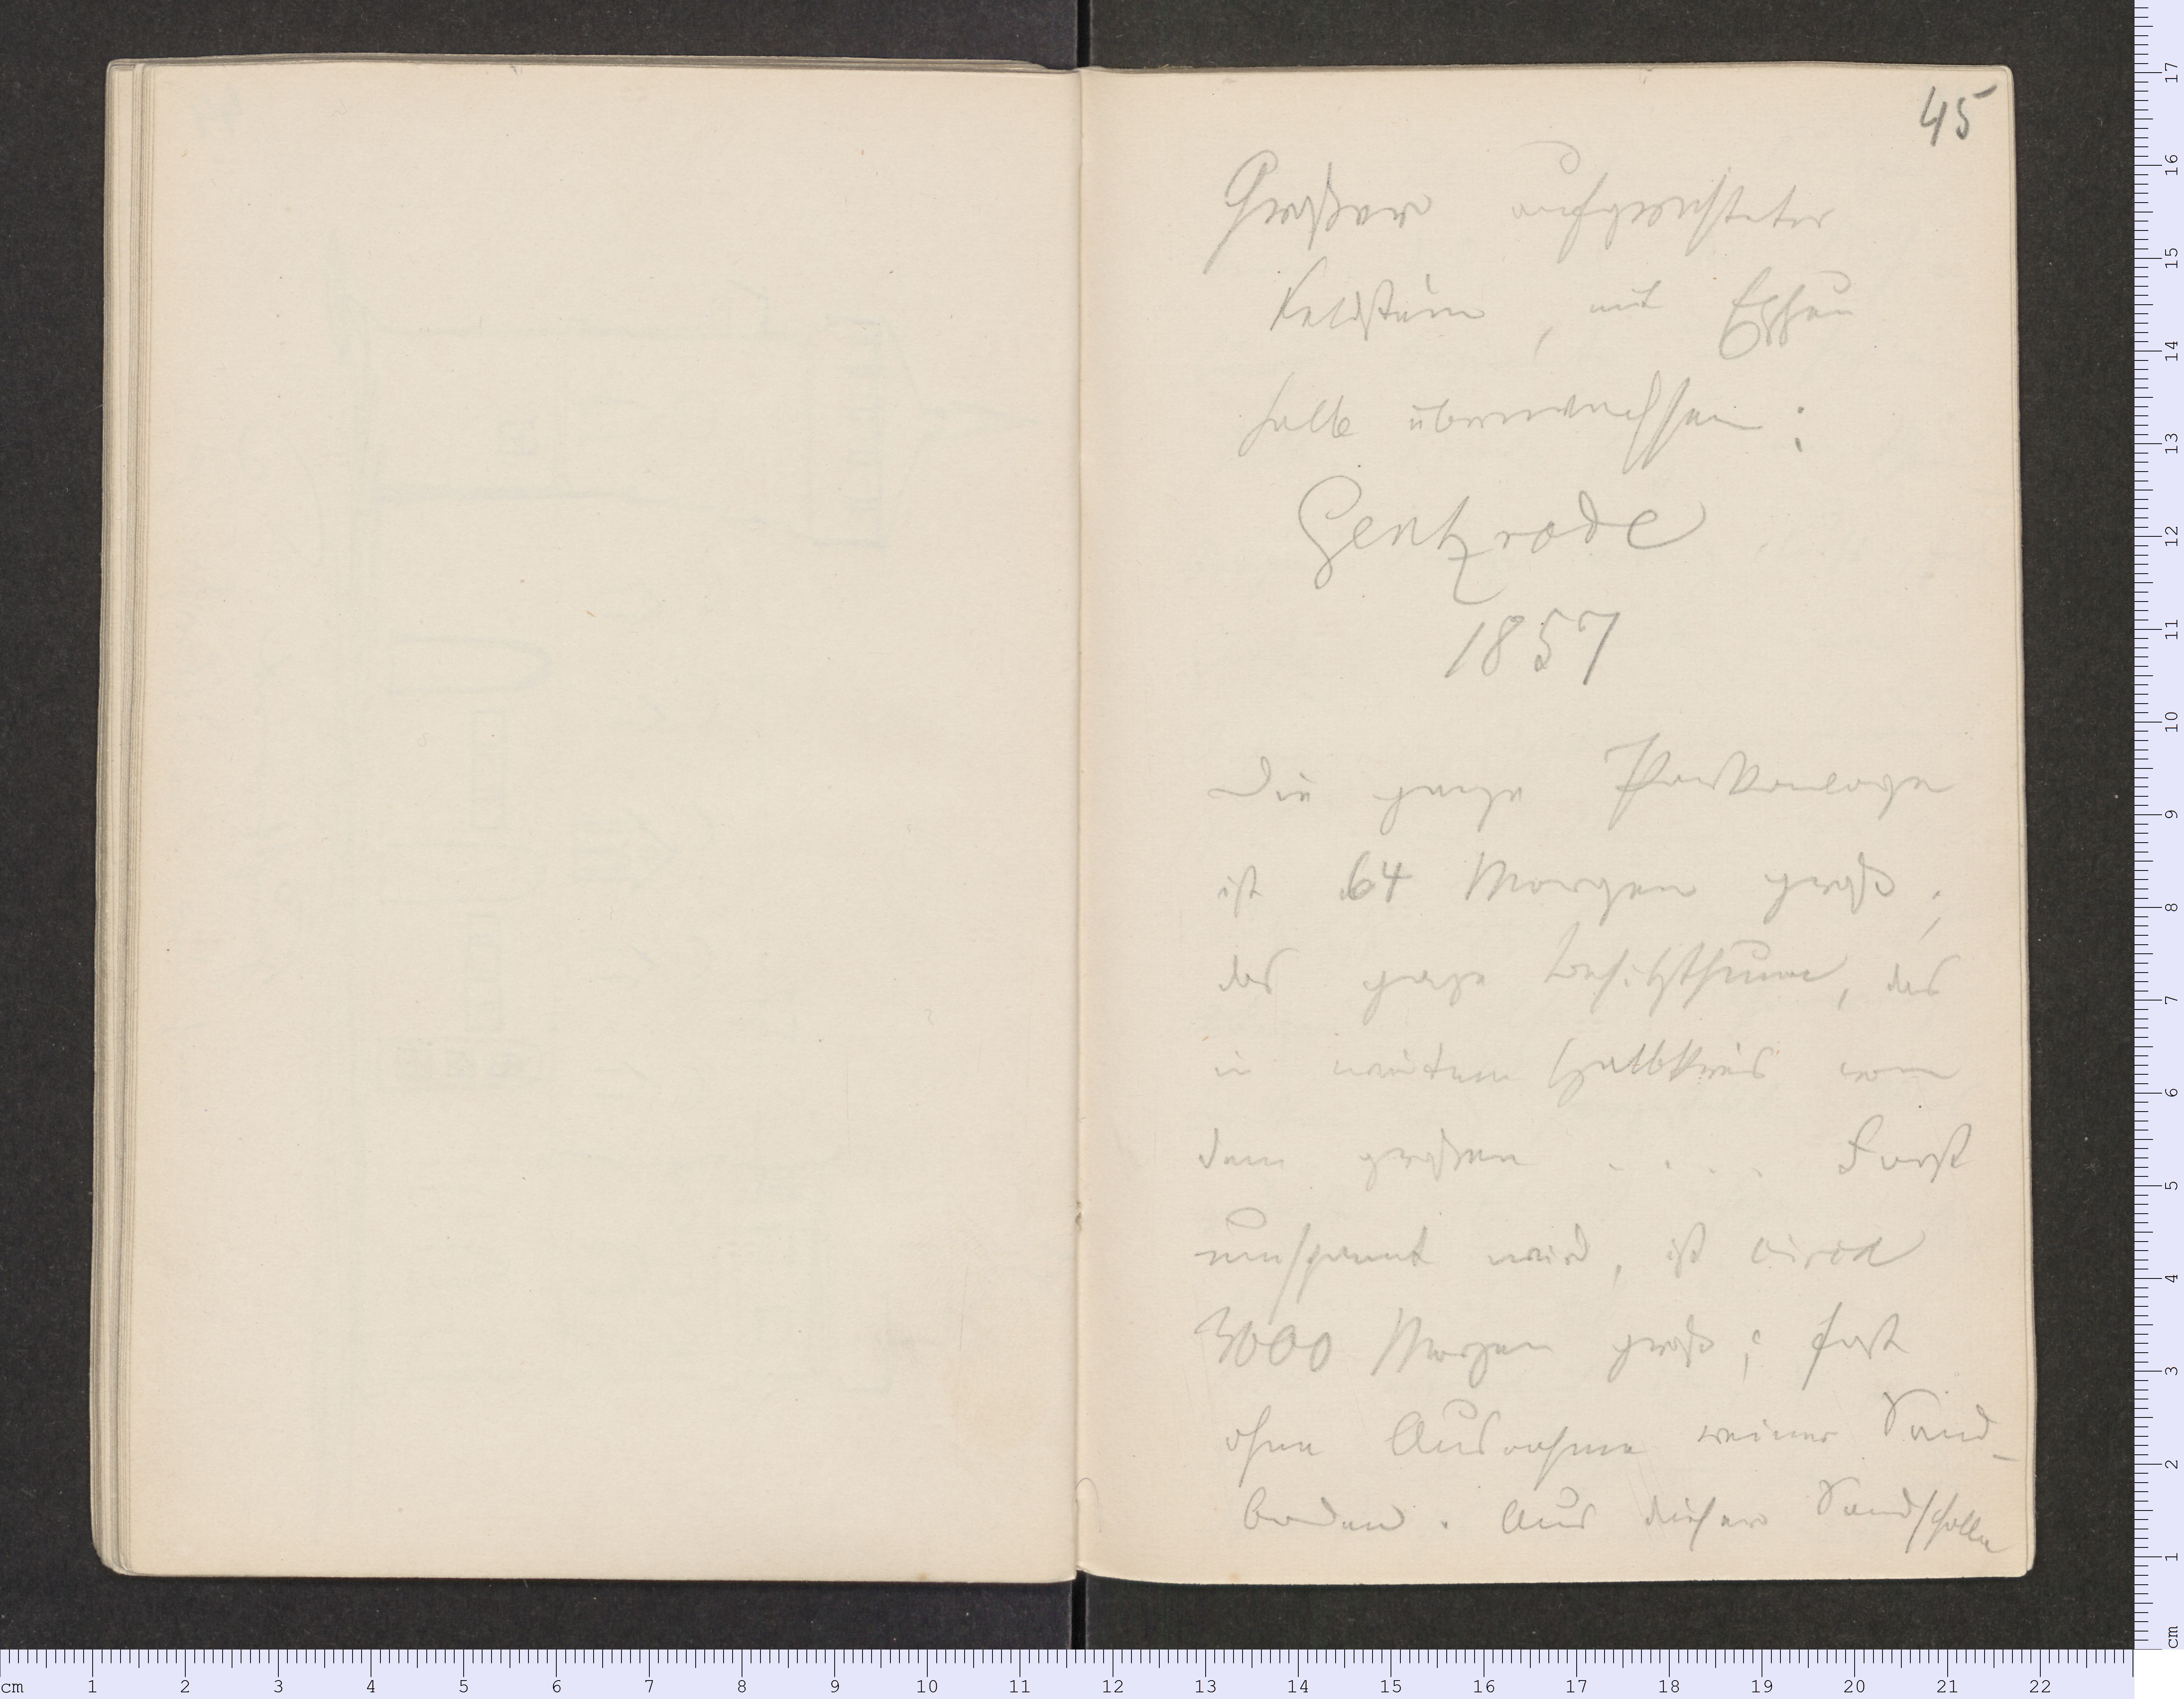 45
Großer aufgerichteter
Feldstein, mit Epheu
halb überwachsen:
Gentzrode
1857
Die ganze Parkanlage
ist 64 Morgen groß;
das ganze Besitzthum, das
in weitem Halbkreis von
dem großen . . . . Forst
umspannt wird, ist circa
3000 Morgen groß; fast
ohne Ausnahme reiner Sand-
boden. Aus dieser Sandscholle